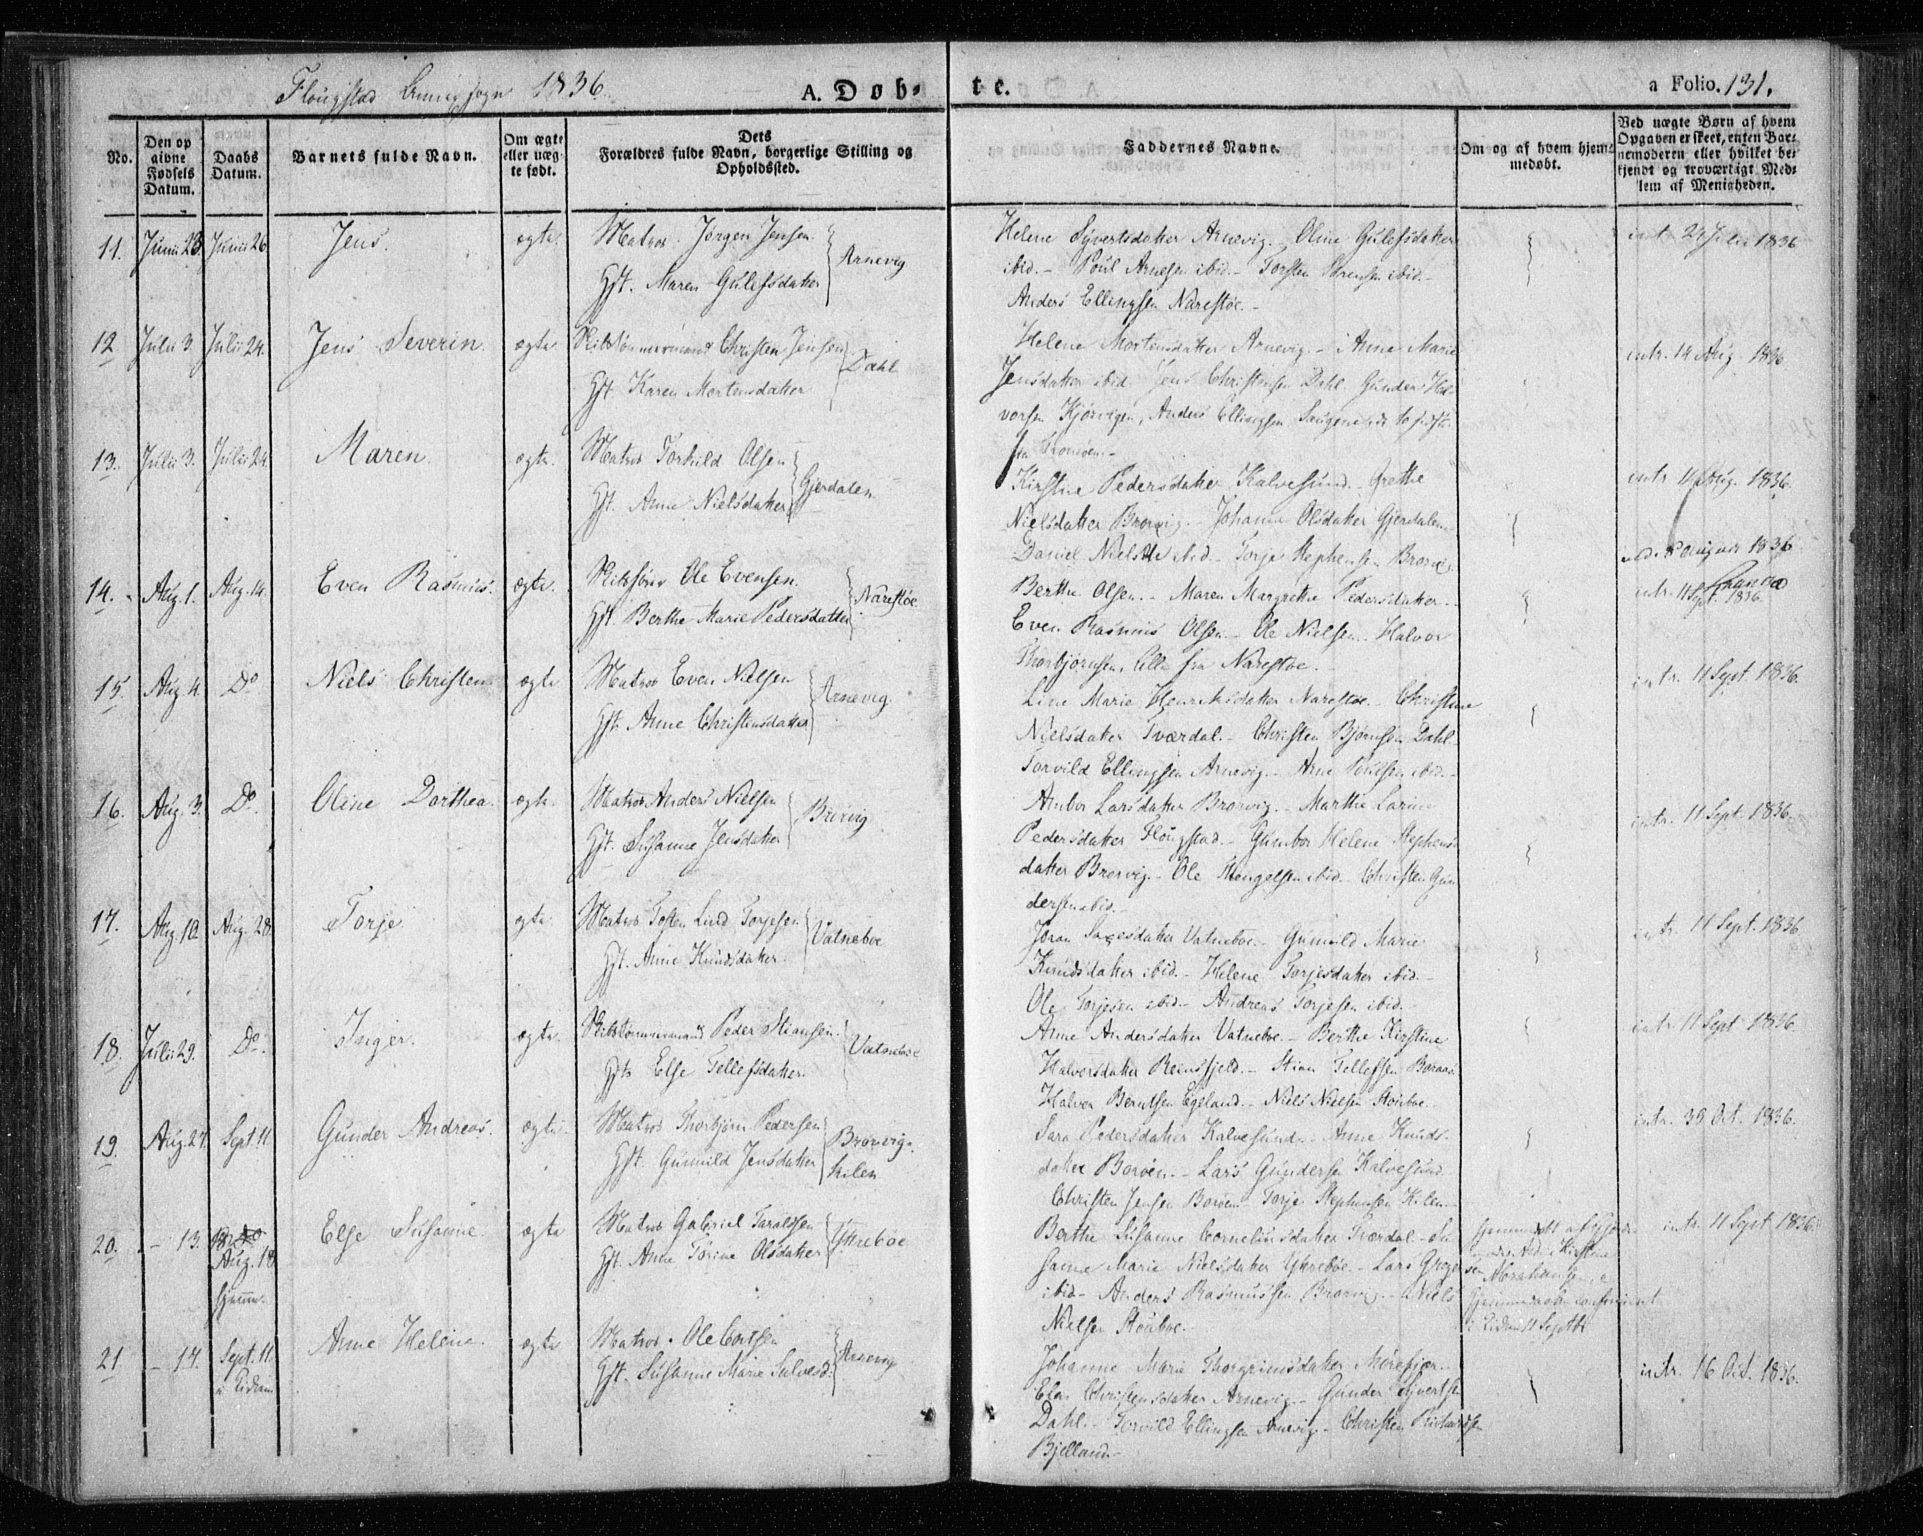 Flougstad Annexsogn 1836.
A. Døb-
te.
a Folio. 131.
No.
Den opgivne Fødsels Datum.
Daabs Datum.
Barnets fulde Navn.
Om ægte eller uægte født.
Dets Forældres fulde Navn, borgerlige Stilling og Opholdssted.
Faddernes Navne.
Om og af hvem hjemmedøbt.
Ved uægte Børn af hvem Opgaven er skeet, enten Barnemoderen eller hvilket bekjendt og troværdigt Medlem af Menigheden.
11. Junii 23. Junii 26. Jens. ægte. Matros Jørgen Jensen
Gft. Maren Gulefsdatter Arnevig
Helene Syvertsdatter Arnevig. Oline Gulefsdatter
ibid. - Poul Arnesen ibid. - Torsten Sørensen ibid. -
Anders Ellingsen Narestøe. -
intr. 24 Julii 1836
12 Julii 3. Julii 24. Jens Severin. ægte. Skibstømmermand Christen Jensen
Gft. Karen Mortensdatter Dahl
Helene Mortensdatter Arnevig. - Anne Marie
Jensdatter ibid. Jens Christensen Dahl. Gunder Hal-
vorsen Kjørvigen, Anders Ellingsen
fra Tromøen. -
intr. 14 Aug. 1836
13. Julii 3. Julii 24. Maren. ægte. Matros Torkild Olsen
Gft. Anne Nielsdatter Gjerdalen
Kirstine Pedersdatter Kalvesund. Grethe
Nielsdatter Brørvig. - Johanne Olsdatter Gjerdalen
Daniel Nielsen ibid. - Torje Stephensen Brørvig.
intr. 14 Aug. 1836.
14. Aug. 1. Aug. 14. Even Rasmus. ægte. Skibsfører Ole Evensen.
Gft. Berthe Marie Pedersdatter Narestøe
Berthe Olsen. - Maren Margrethe Pedersdatter. -
Even Rasmus Olsen - Ole Nielsen - Halvor
Thorbjørnsen, alle fra Narestøe.
intr. 11 Sept. 1836.
15. Aug 4. Do Niels Christen ægte Matros Even Nielsen
Gft. Anne Christensdatter Arnevig
Line Marie Henriksdatter Narestøe. - Christine
Nielsdatter Tværdal. - Christen Bjørnsen Dahl -
Torvild Ellingsen Arnevig. - Arne Poulsen ibid. -
intr. 11 Sept. 1836.
16. Aug. 3. Do. Oline Dorthea. ægte. Matros Anders Nielsen
Gft. Susanne Jensdatter Brørvig
Ambor Larsdatter Brørvig. - Marthe Larine
Pedersdatter Flougstad. - Gumbor Helene Stephens-
datter Brørvig. - Ole Stengelsen ibid. - Christen Gun
dersen ibid. -
intr. 11 Sept. 1836.
17. Aug. 10. Aug. 28. Torje ægte. Matros Tosten Lund Torjesen
Gft. Anne Knudsdatter. Vatneboe
Joran Saxesdatter Vatneboe. - Gunild Marie
Knudsdatter ibid. - Helene Torjesdatter ibid. -
Ole Torjesen ibid. - Andreas Torjesen ibid. -
intr. 11 Sept. 1836.
18. Julii 29. Do. Inger. ægte. Skibstømmermand Peder Stiansen.
Gft. Else Tellefsdatter. Vatneboe
Anne Andersdatter Vatneboe. - Berthe Kirstine
Halversdatter Reensfjeld. - Stian Tellefsen Boraas
Halvor Berntsen Egeland. - Niels Nielsen Stouboe.
intr. 11 Sept 1836.
19. Aug 27. Sept. 11 Gunder Andreas. ægte. Matros Thorbjørn Pedersen
Gft. Gunuld Jensdatter Brørvig-
kilen
Sara Pedersdatter Kalvesund. - Anne Knuds-
datter Borøen. - Lars Gundersen Kalvesund
Christen Jensen Borøen - Torje Stephensen Kilen
intr. 30 Oct. 1836.
20. - 13. Aug. 18 hjemme. Else Susanne. ægte Matros Gabriel Taraldsen
Gft. Anne Torine Olsdatter Yttreboe
Berthe Susanne Corneliusdatter Tværdal - Su
sanne Marie Nielsdatter Yttreboe. - Lars Greger
ibid - Anders Rasmussen Brørvig. - Niels
Nielsen Stouboe. -
Hjemmedøbt af
Kirstine
Abrahamsen
Hjemmedaaben confirmeret
i Eidam 11 Septbr
intr. 11 Sept. 1836.
21 - 17. Sept. 11 i Eidam Anne Helene. ægte Matros. Ole Cortsen
Gft. Susanne Marie Salvesd. Arnevig
Johanne Marie Thorgrimsdatter Mørefjær. -
Elen Christensdatter Arnevig. - Gunder Syvertsen
Dahl. - Torvild Ellingsen Arnevig. - Christen Richardsen
Bjelland -
intr. 16 Oct. 1836.